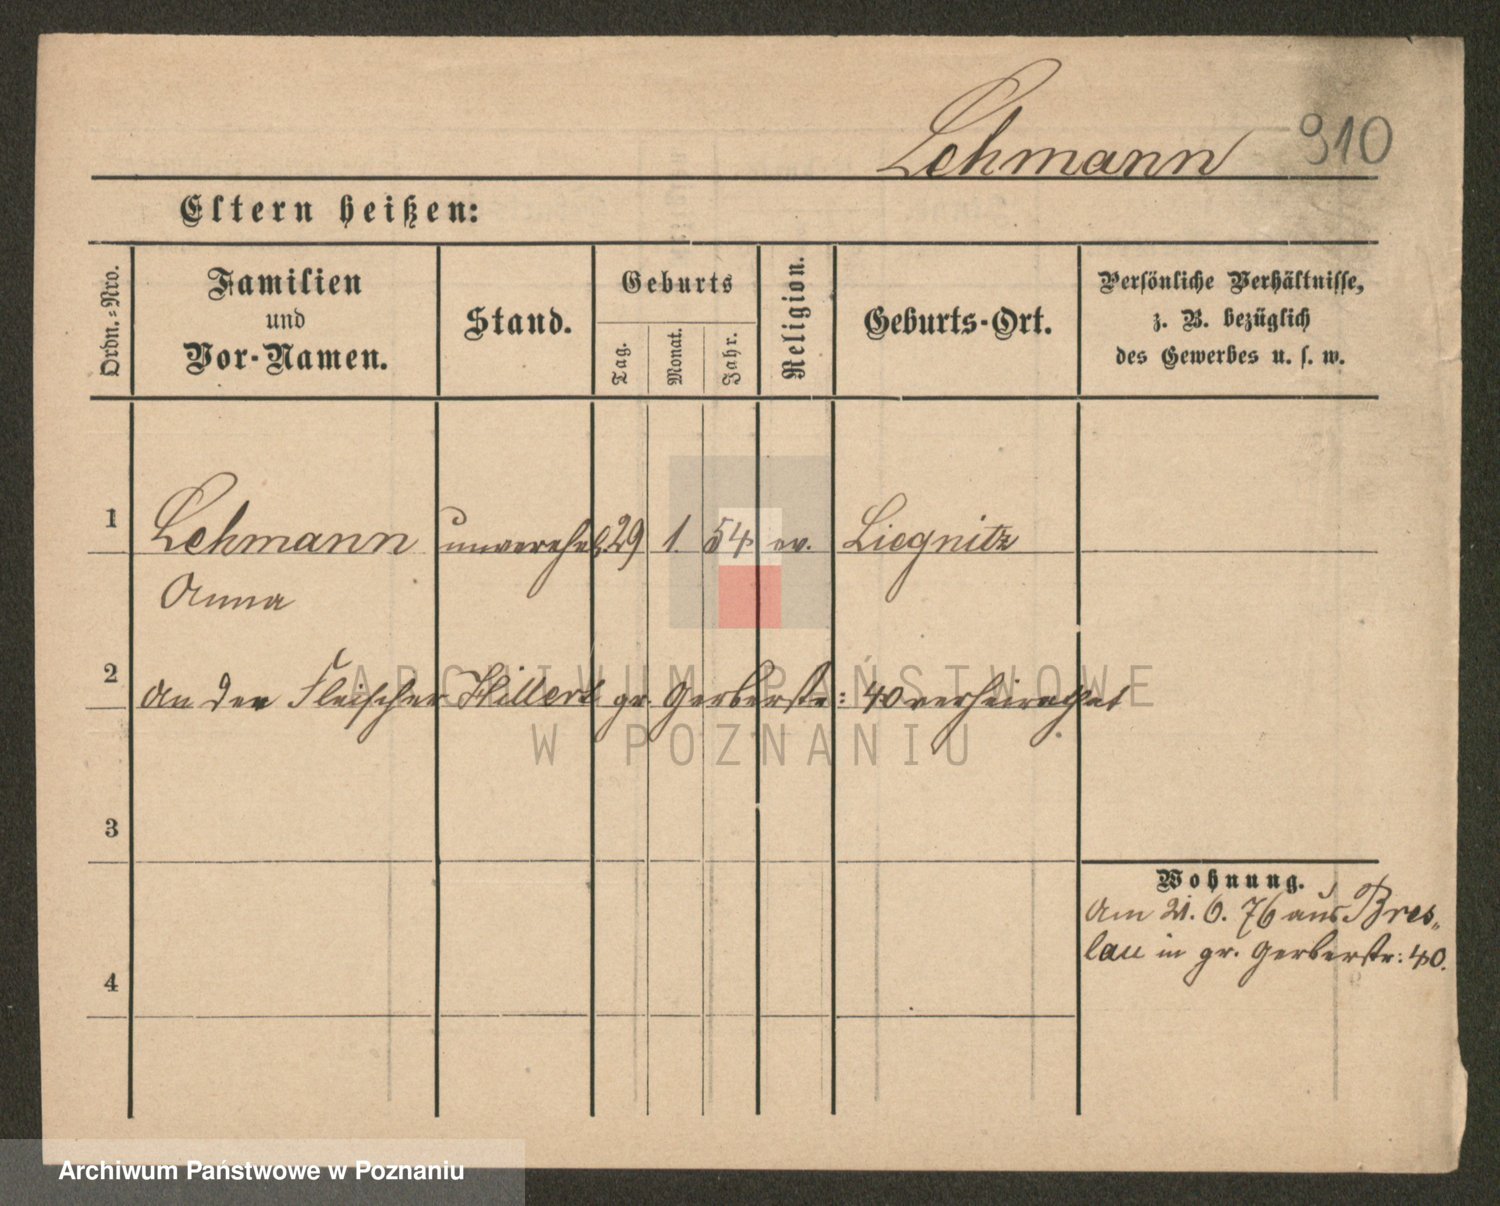 Lehmann 910
Eltern heißen:
Ordn.-Nro.
Familien
und
Vor-Namen.
Stand.
Geburts
Tag.
Monat.
Jahr.
Religion.
Geburts-Ort.
Persönliche Verhältnisse,
z. B. bezüglich
des Gewerbes u. s. w.
1 Lehmann unverehel. 29 1. 54 ev. Liegnitz
Anna
2 An den Fleischer Hillert gr. Gerberstr: 40 verheirathet
3
Wohnung.
Am 21. 6. 76 aus Bres-
lau in gr. Gerberstr: 40.
4
ARCHIWUM PAŃSTWOWE
W POZNANIU
Archiwum Państwowe w Poznaniu